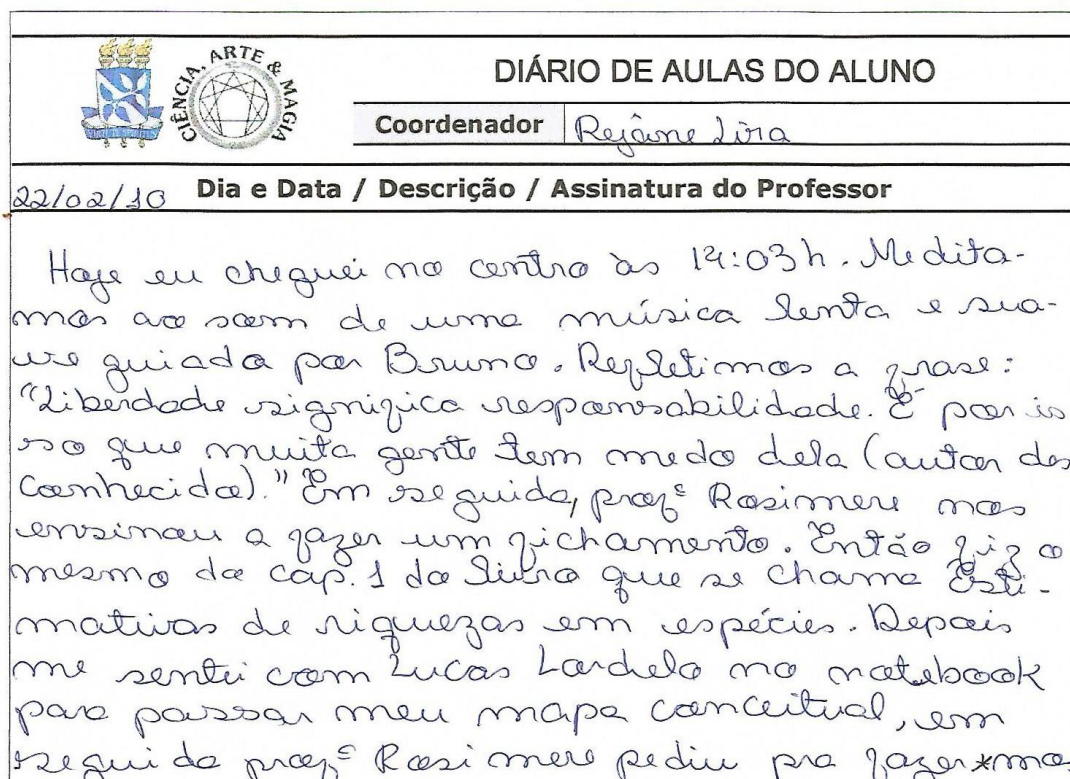 CIÊNCIA, ARTE & MAGIA
DIÁRIO DE AULAS DO ALUNO
Coordenador Rejâne Lira
22/02/10 Dia e Data / Descrição / Assinatura do Professor
Hoje eu cheguei no centro às 14:03h. Medita-
mos ao som de uma música lenta e sua-
ve guiada por Bruno. Refletimos a frase:
"Liberdade significa responsabilidade. É por is
so que muita gente tem medo dela (autor des
conhecido)." Em seguida, profª Rosimere nos
ensinou a fazer um fichamento. Então fiz o
mesmo do cap. 1 do livro que se chama Esti-
mativas de riquezas em espécies. Depois
me sentei com Lucas Lardelo no notebook
para passar meu mapa conceitual, em
seguida profª Rosimere pediu pra fazer*mos